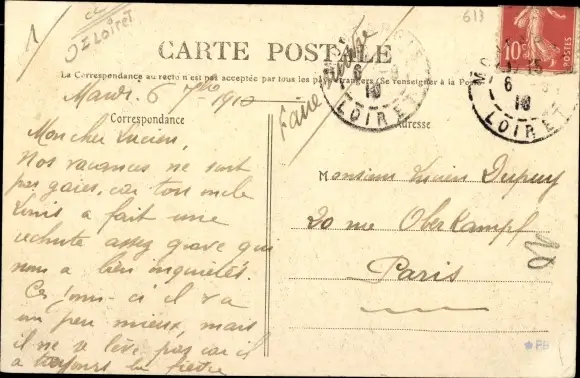 1
Loiret
613
CARTE POSTALE
La Correspondance au recto n'est pas acceptée par tous les pays étrangers (Se renseigner à la Pos
10c
6
10
LOIRET
15
6
10
LOIRET
Mardi 6 7bre 1910
Correspondance
Adresse
Mon cher Lucien,
Nos vacances ne sont
pas gaies, car ton oncle
Louis a fait une
rechute assez grave qui
nous a bien inquiétés.
Ces jours-ci il va
un peu mieux, mais
il ne se lève pas car il
a toujours la fièvre
Monsieur Lucien Dupuy
20 rue Oberkampf
Paris